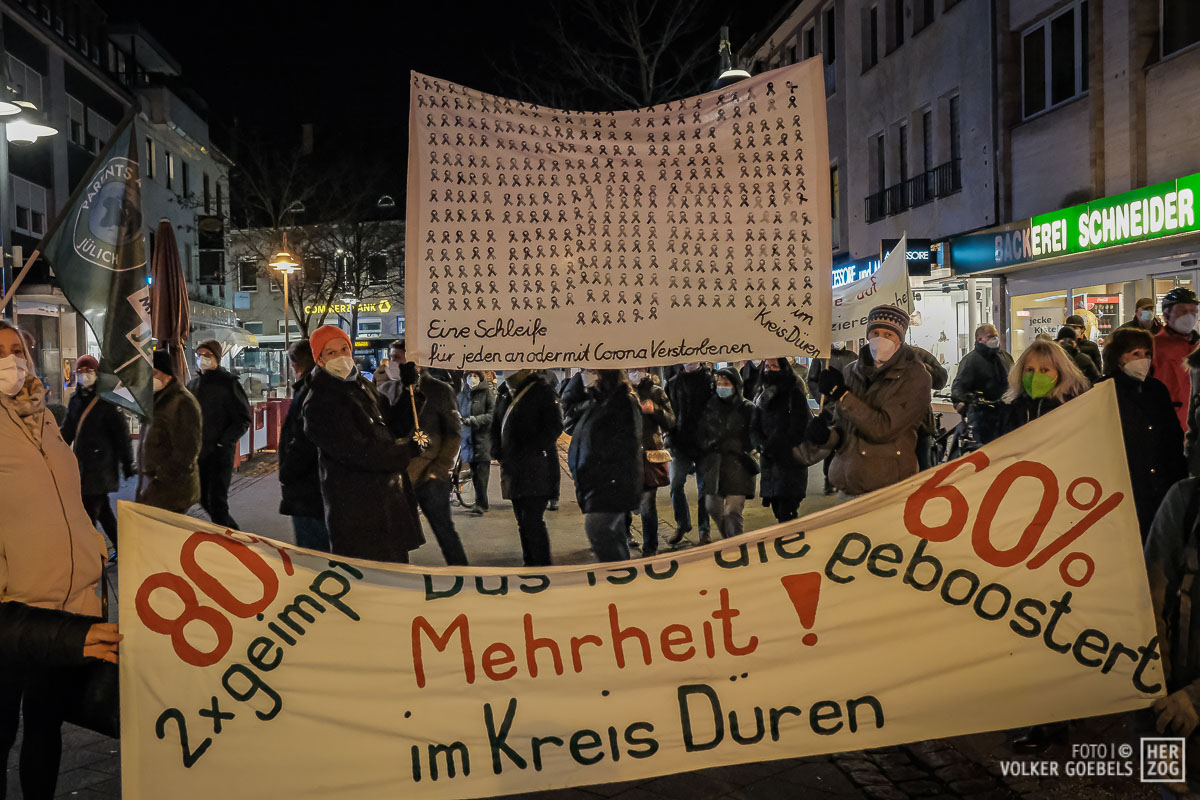 PARENTS
JÜLICH
COMMERZBANK
Eine Schleife
für jeden an oder mit Corona Verstorbenen
im
Kreis Düren
auf
BÄCKEREI SCHNEIDER
jecke
80%
2x geimpft
Das ist die
Mehrheit!
im Kreis Düren
60%
geboostert
FOTO | ©
VOLKER GOEBELS
HER
ZOG